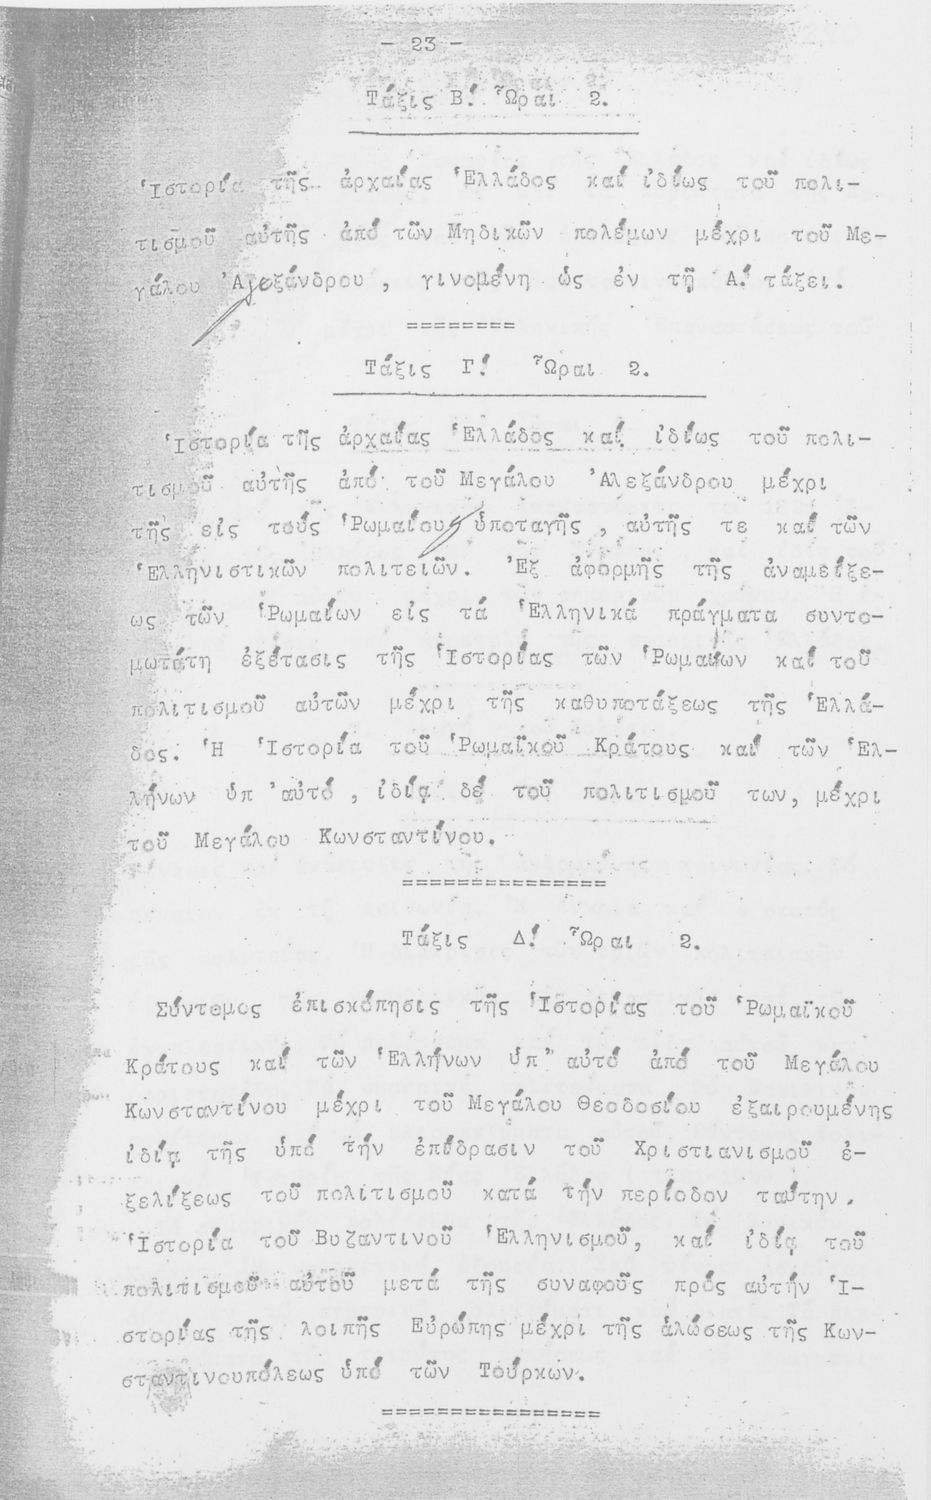 - 23 -
Τάξις Β.' Ὧραι 2.
Ἱστορία τῆς ἀρχαίας Ἑλλάδος καί ἰδίως τοῦ πολι-
τισμοῦ αὐτῆς ἀπό τῶν Μηδικῶν πολέμων μέχρι τοῦ Με-
γάλου Ἀλεξάνδρου, γινομένη ὡς ἐν τῇ Α.' τάξει.
========
Τάξις Γ.' Ὧραι 2.
Ἱστορία τῆς ἀρχαίας Ἑλλάδος καί ἰδίως τοῦ πολι-
τισμοῦ αὐτῆς ἀπό τοῦ Μεγάλου Ἀλεξάνδρου μέχρι
τῆς εἰς τούς Ῥωμαίους ὑποταγῆς, αὐτῆς τε καί τῶν
Ἑλληνιστικῶν πολιτειῶν. Ἐξ ἀφορμῆς τῆς ἀναμείξε-
ως τῶν Ῥωμαίων εἰς τά Ἑλληνικά πράγματα συντο-
μωτάτη ἐξέτασις τῆς Ἱστορίας τῶν Ῥωμαίων καί τοῦ
πολιτισμοῦ αὐτῶν μέχρι τῆς καθυποτάξεως τῆς Ἑλλά-
δος. Ἡ Ἱστορία τοῦ Ῥωμαϊκοῦ Κράτους καί τῶν Ἑλ-
λήνων ὑπ' αὐτό, ἰδίᾳ δέ τοῦ πολιτισμοῦ των, μέχρι
τοῦ Μεγάλου Κωνσταντίνου.
===============
Τάξις Δ.' Ὧραι 2.
Σύντομος ἐπισκόπησις τῆς Ἱστορίας τοῦ Ῥωμαϊκοῦ
Κράτους καί τῶν Ἑλλήνων ὑπ' αὐτό ἀπό τοῦ Μεγάλου
Κωνσταντίνου μέχρι τοῦ Μεγάλου Θεοδοσίου ἐξαιρουμένης
ἰδίᾳ τῆς ὑπό τήν ἐπίδρασιν τοῦ Χριστιανισμοῦ ἐ-
ξελίξεως τοῦ πολιτισμοῦ κατά τήν περίοδον ταύτην.
Ἱστορία τοῦ Βυζαντινοῦ Ἑλληνισμοῦ, καί ἰδίᾳ τοῦ
πολιτισμοῦ αὐτοῦ μετά τῆς συναφοῦς πρός αὐτήν Ἱ-
στορίας τῆς λοιπῆς Εὐρώπης μέχρι τῆς ἁλώσεως τῆς Κων-
σταντινουπόλεως ὑπό τῶν Τούρκων.
================